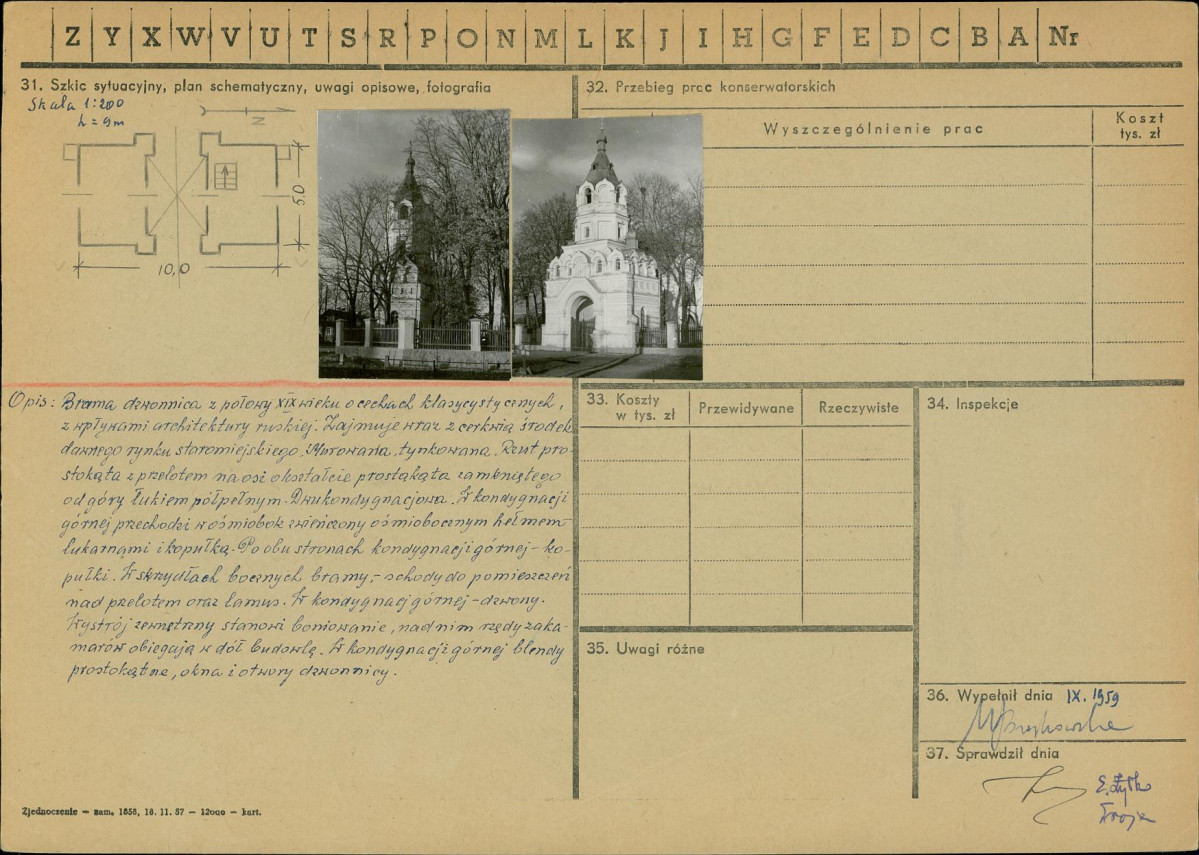 Z Y X W V U T S R P O N M L K J I H G F E D C B A Nr
31. Szkic sytuacyjny, plan schematyczny, uwagi opisowe, fotografia
Skala 1:200
h = 9m
N
5.0
10,0
Opis: Brama dzwonnica z połowy XIX wieku o cechach klasycystycznych,
z wpływami architektury ruskiej. Zajmuje wraz z cerkwią środek
dawnego rynku staromiejskiego. Murowana, tynkowana. Rzut pro-
stokąta z przelotem na osi o kształcie prostąkąta zamkniętego
od góry łukiem półpełnym. Dwukondygnacjowa. W kondygnacji
górnej przechodzi w ośmiobok zwieńczony ośmiobocznym hełmem
lukarnami i kopułką. Po obu stronach kondygnacji górnej - ko-
pułki. W skrzydłach bocznych bramy, - schody do pomieszczeń
nad przelotem oraz lamus. W kondygnacj górnej - dzwony.
Wystrój zewnętrzny stanowi boniowanie, nad nim rzędy zaka-
marów obiegają w dół budowlę. W kondygnacji górnej blendy
prostokątne, okna i otwory dzwonnicy.
Zjednoczenie — zam. 1858, 18. 11. 57 — 12000 — kart.
32. Przebieg prac konserwatorskich
Wyszczególnienie prac
Koszt
tys. zł
33. Koszty
w tys. zł
Przewidywane
Rzeczywiste
34. Inspekcje
35. Uwagi różne
36. Wypełnił dnia IX. 1959
37. Sprawdził dnia